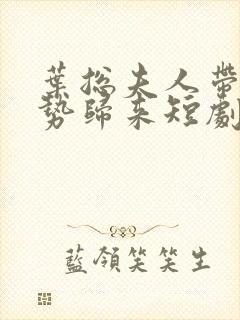 葉總夫人帶
勢歸來短劇
藍領笑笑生